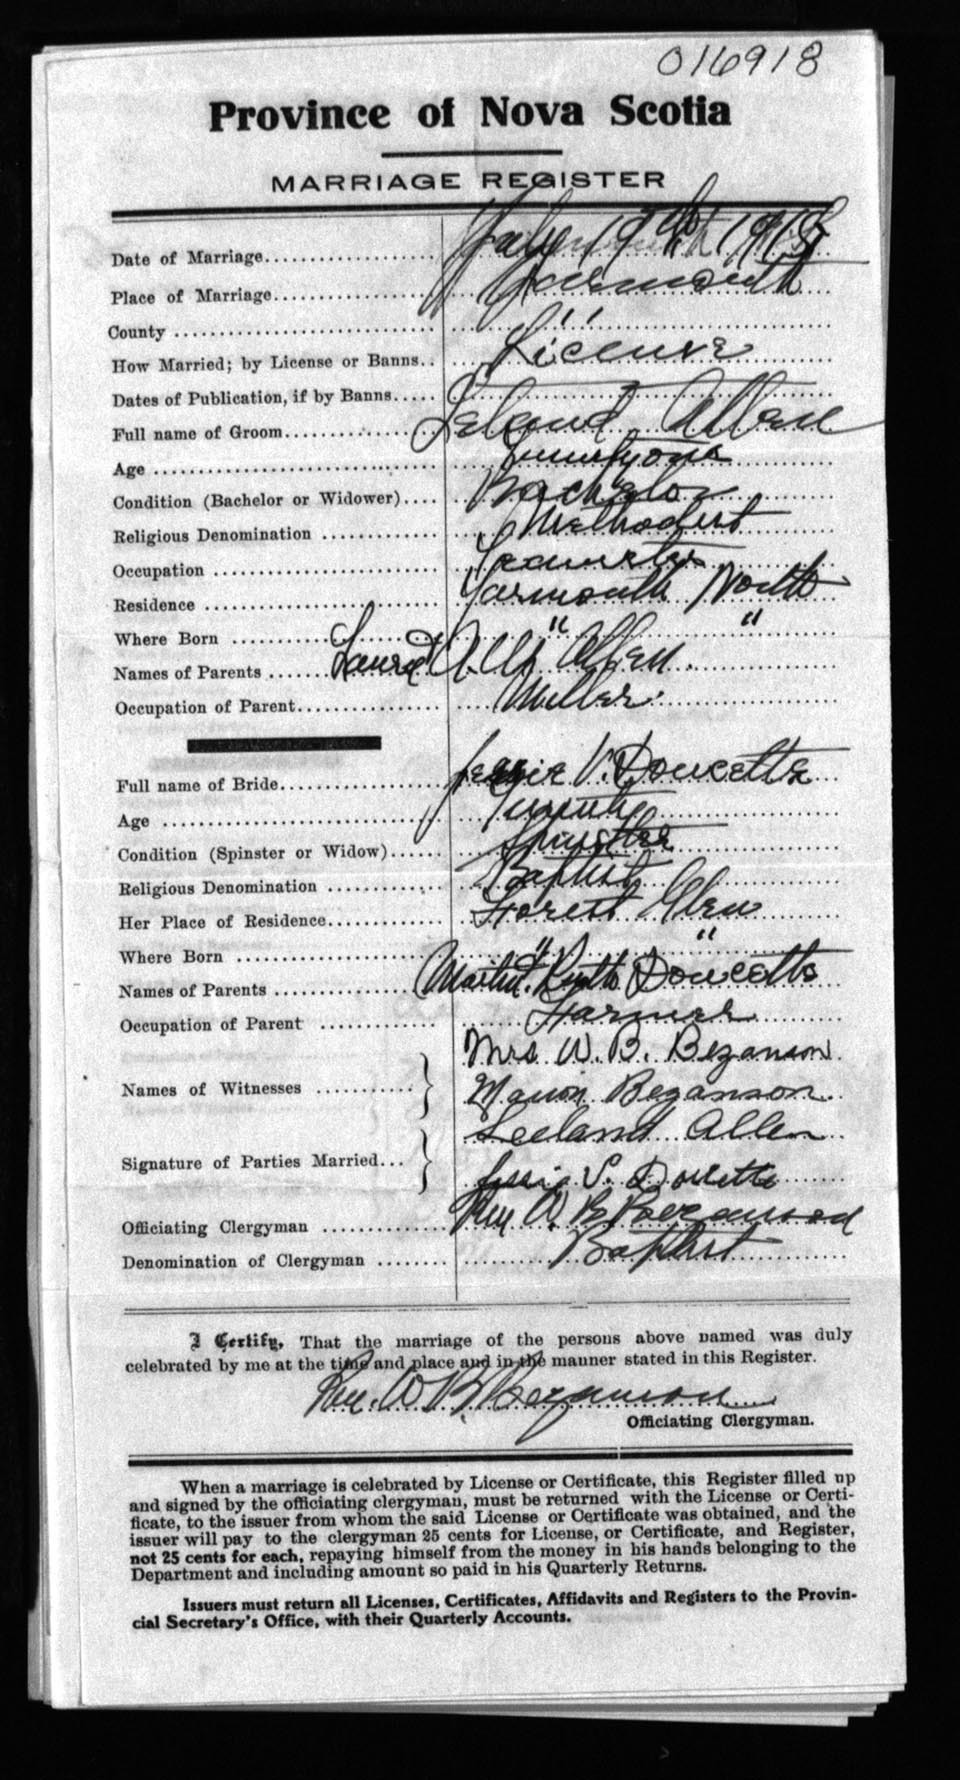 016918
Province of Nova Scotia
MARRIAGE REGISTER
Date of Marriage July 19th 1918
Place of Marriage Yarmouth
County " "
How Married; by License or Banns License
Dates of Publication, if by Banns
Full name of Groom Leland Allen
Age
Condition (Bachelor or Widower) Bachelor
Religious Denomination Methodist
Occupation Teamster
Residence Yarmouth North
Where Born " "
Names of Parents Allen
Occupation of Parent Miller
Full name of Bride Jessie V. Doucette
Age Twenty
Condition (Spinster or Widow) Spinster
Religious Denomination Baptist
Her Place of Residence Forest Glen
Where Born " "
Names of Parents Martin Ruth Doucette
Occupation of Parent Farmer
Names of Witnesses Mrs W. B. Bezanson
Marion Bezanson
Signature of Parties Married Leeland Allen
Jessie Doucette
Officiating Clergyman Rev W. B. Bezanson
Denomination of Clergyman Baptist
I Certify, That the marriage of the persons above named was duly
celebrated by me at the time and place and in the manner stated in this Register.
Rev. W. B. Bezanson
Officiating Clergyman.
When a marriage is celebrated by License or Certificate, this Register filled up
and signed by the officiating clergyman, must be returned with the License or Certi-
ficate, to the issuer from whom the said License or Certificate was obtained, and the
issuer will pay to the clergyman 25 cents for License, or Certificate, and Register,
not 25 cents for each, repaying himself from the money in his hands belonging to the
Department and including amount so paid in his Quarterly Returns.
Issuers must return all Licenses, Certificates, Affidavits and Registers to the Provin-
cial Secretary's Office, with their Quarterly Accounts.